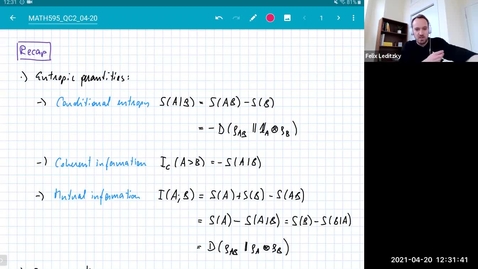 12:31
81%
MATH595_QC2_04-20
1
Felix Leditzky
Recap
.) Entropic quantities:
-) Conditional entropy S(A|B) = S(AB) - S(B)
= - D(ρ_AB || 𝟙_A ⊗ ρ_B)
-) Coherent information I_c(A>B) = - S(A|B)
-) Mutual information I(A;B) = S(A) + S(B) - S(AB)
= S(A) - S(A|B) = S(B) - S(B|A)
= D(ρ_AB || ρ_A ⊗ ρ_B)
2021-04-20 12:31:41